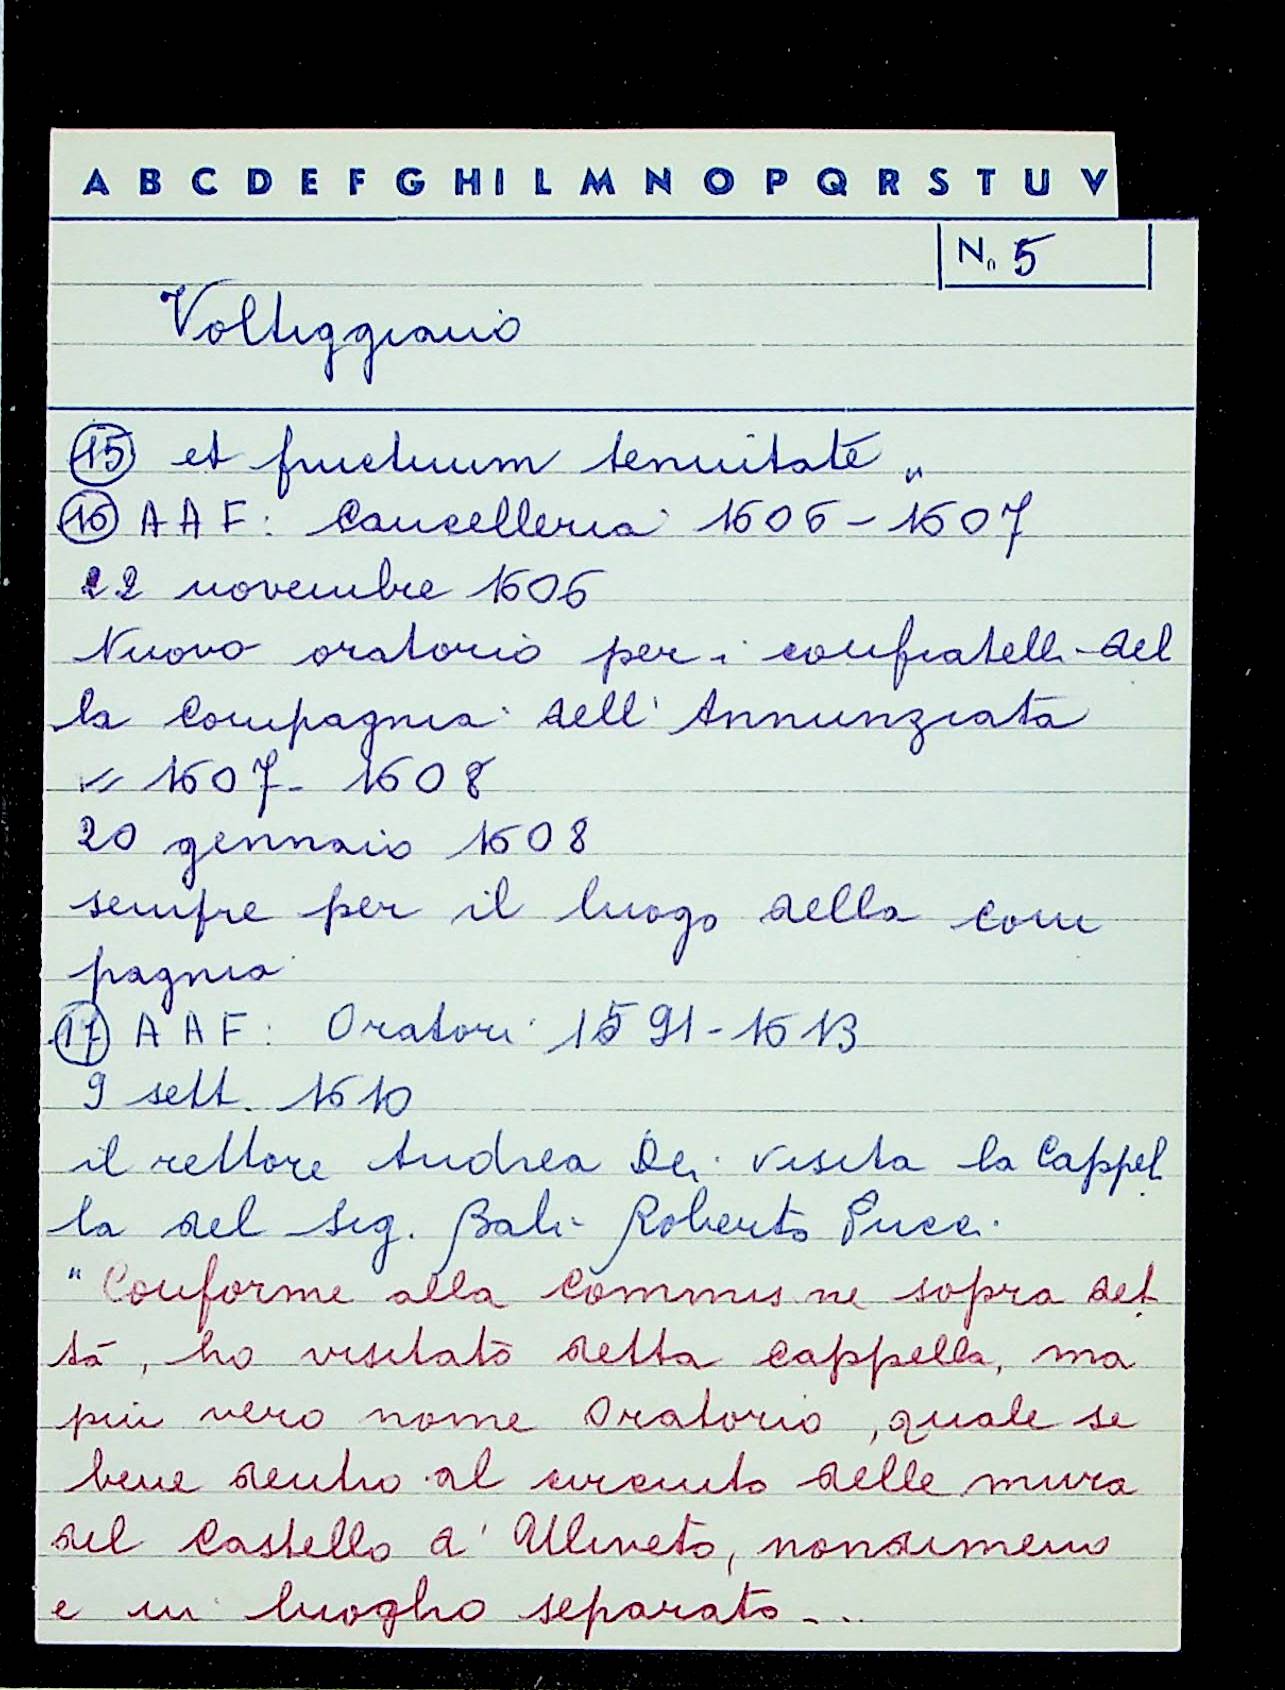 A B C D E F G H I L M N O P Q R S T U V
N. 5
Voltiggiano
15 et fructuum tenuitate"
16 A A F: Cancelleria 1606-1607
22 novembre 1606
Nuovo oratorio per i confratelli del
la Compagnia dell'Annunziata
" 1607-1608
20 gennaio 1608
sempre per il luogo della com
pagnia
17 A A F: Oratori 1591-1613
9 sett. 1610
il rettore Andrea Dei visita la Cappel
la del sig. Balì Roberto Pucci.
"Conforme alla Commis.ne sopra det
ta, ho visitato detta cappella, ma
più vero nome Oratorio, quale se
bene dentro al circuito delle mura
del Castello d'Uliveto, nondimeno
e in luogho separato...